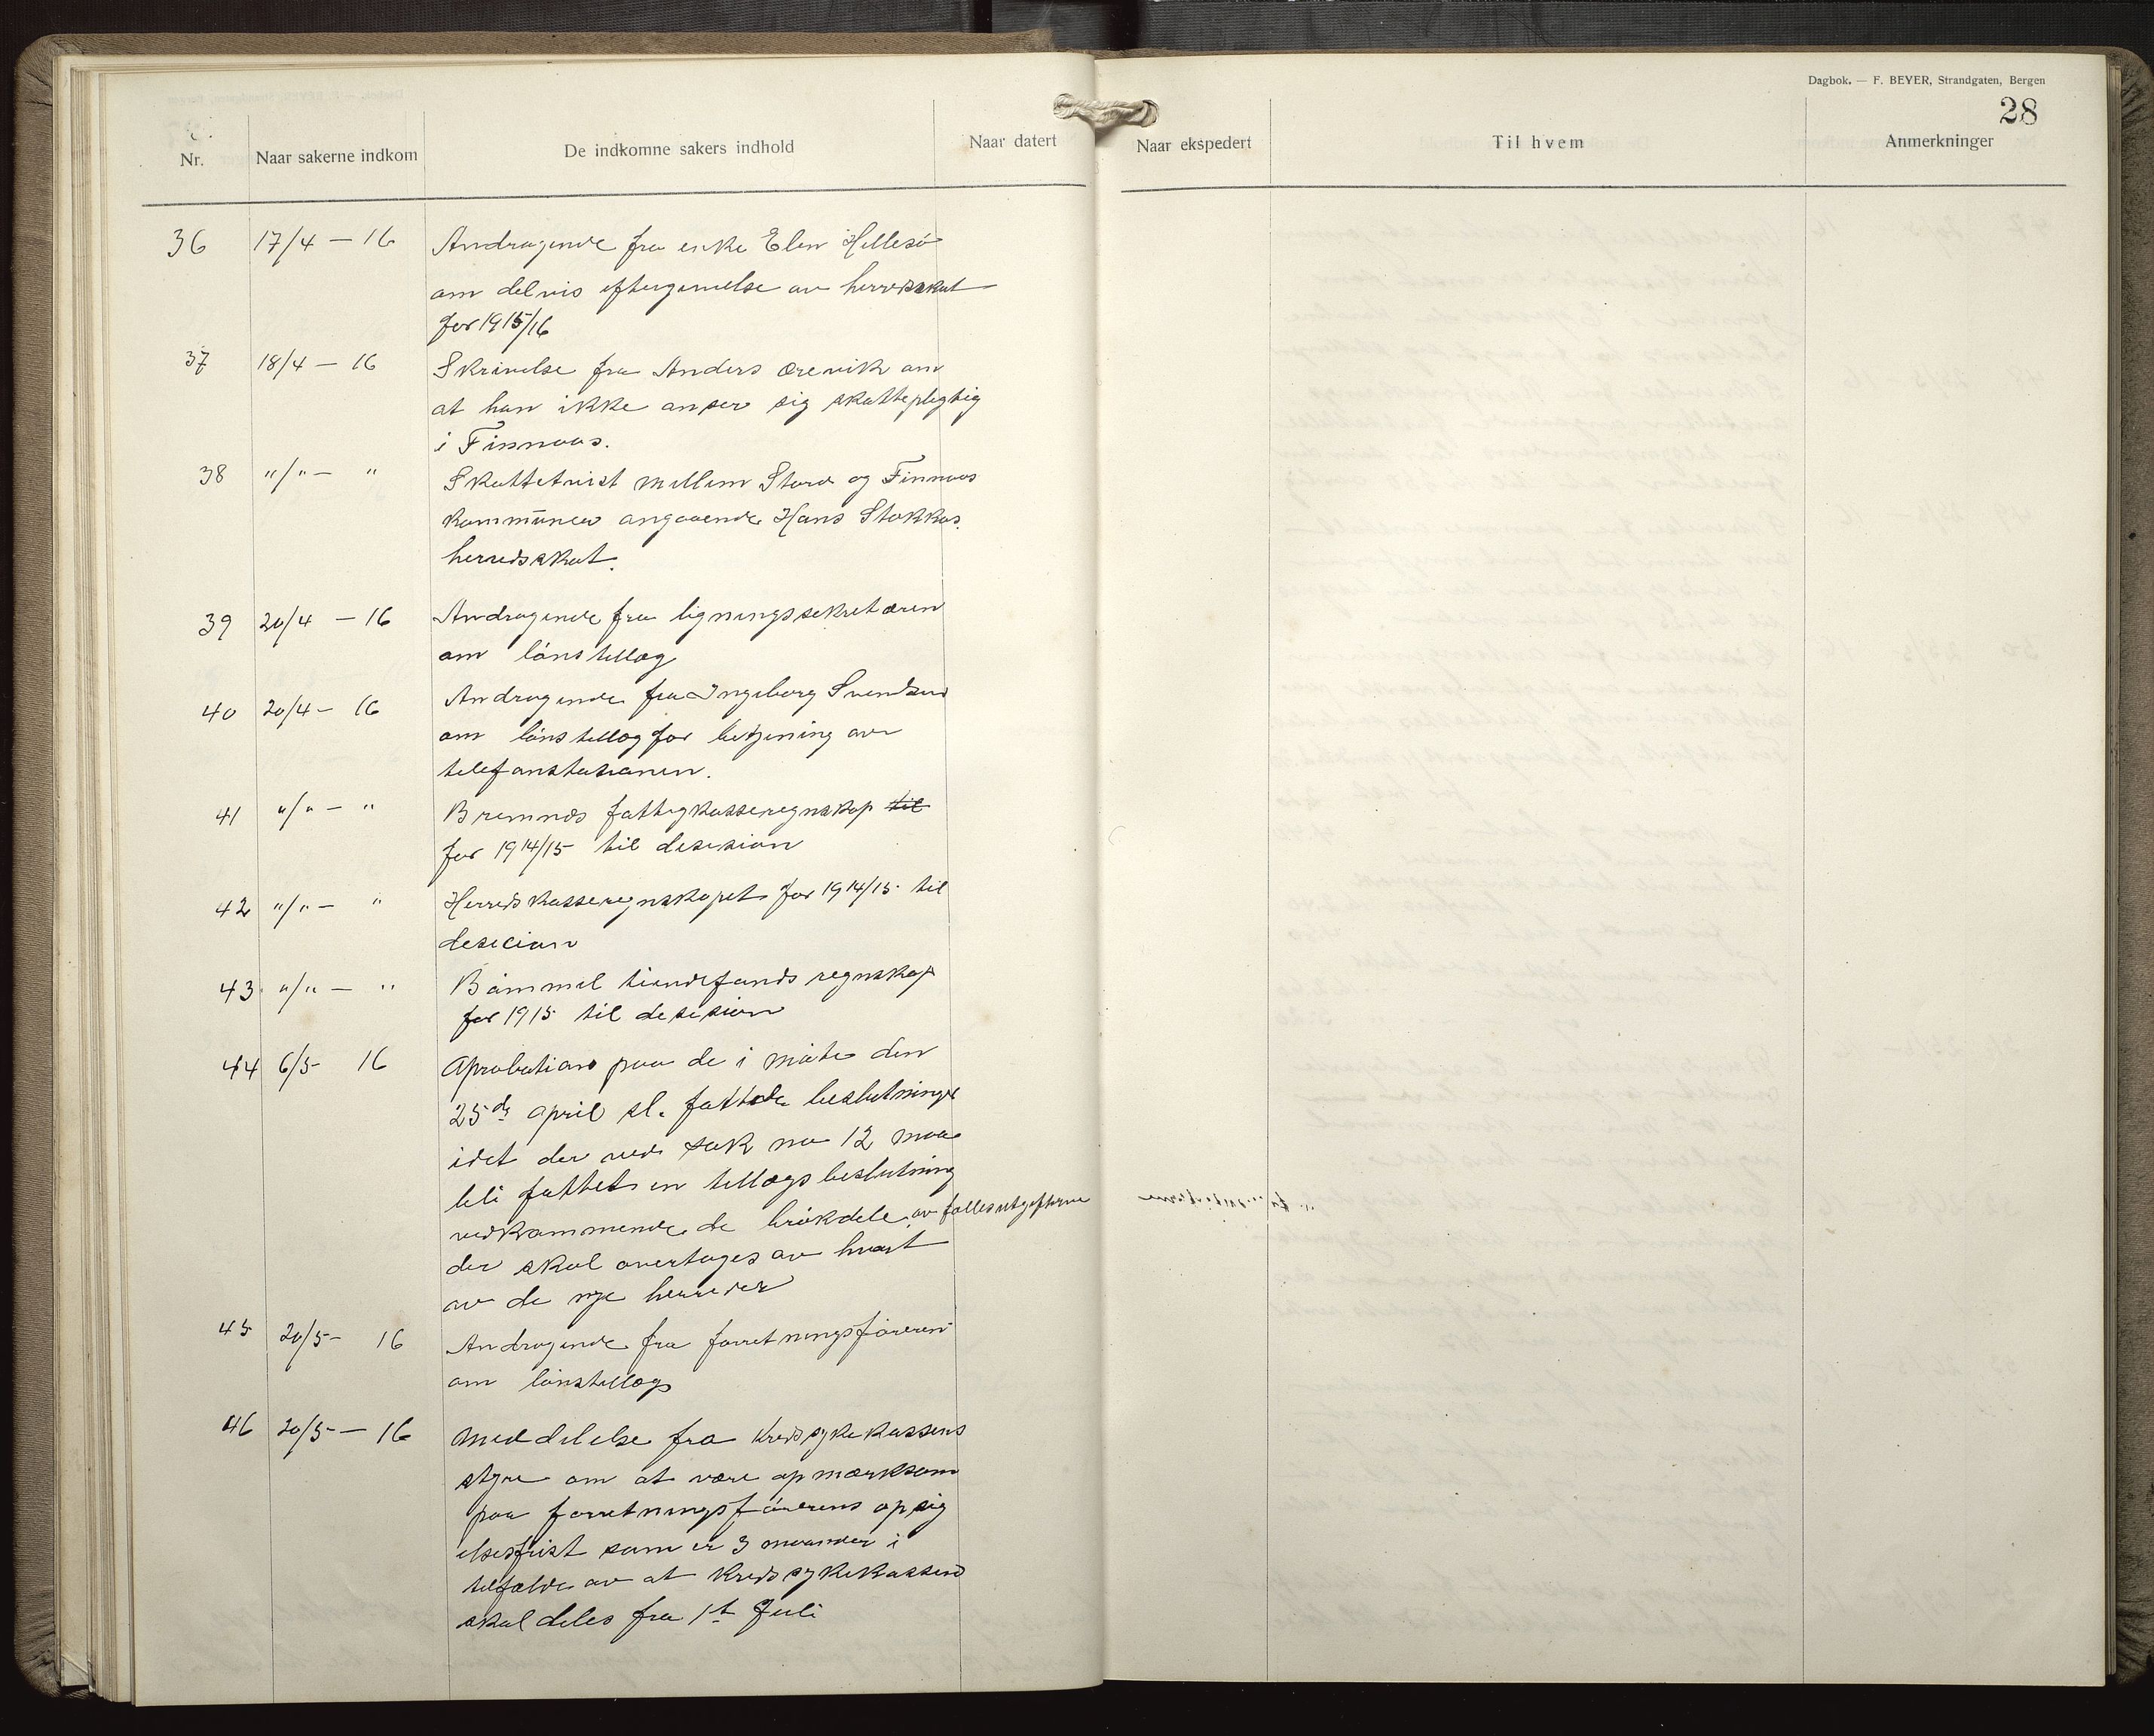 Dagbok. — F. BEYER, Strandgaten, Bergen
28
Nr. Naar sakerne indkom De indkomne sakers indhold Naar datert Naar ekspedert Til hvem Anmerkninger
36 17/4 — 16 Andragende fra enke Elen Hillesö
om delvis eftergivelse av herredskat
for 1915/16
37 18/4 — 16 Skrivelse fra Anders Ørevik om
at han ikke anser sig skattepligtig
i Finnaas.
38 "/" — " Skattetvist mellem Stord og Finnaas
kommuner angaaende Hans Stokkas
herredsskat.
39 20/4 — 16 Andragende fra ligningssekretæren
om lönstillæg
40 20/4 — 16 Andragende fra Ingeborg Svendsen
om lönstillæg for betjening av
telefonstationen.
41 "/" — " Bremnes fattigkasseregnskap til
for 1914/15 til desision
42 "/" — " Herredskasseregnskapet for 1914/15 til
desicion
43 "/" — " Bömmel tiendefonds regnskap
for 1915 til desision
44 6/5 16 Aprobation paa de i möte den
25de april sl. fattede beslutninger
idet der ved sak no 12 maa
bli fattet en tillægsbeslutning
vedkommende de brökdele av fællesutgifterne
der skal overtages av hvert
av de nye herreder
45 20/5 — 16 Andragende fra forretningsföreren
om lönstillæg
46 20/5 — 16 Meddelelse fra Kredssykekassens
styre om at være opmerksom
paa forretningsförerens opsig
elsesfrist som er 3 maaneder i
tilfælde av at Kredssykekassen
skal deles fra 1ste Juli